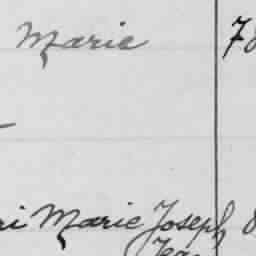 Marie 78
ri Marie Joseph 8
Jean